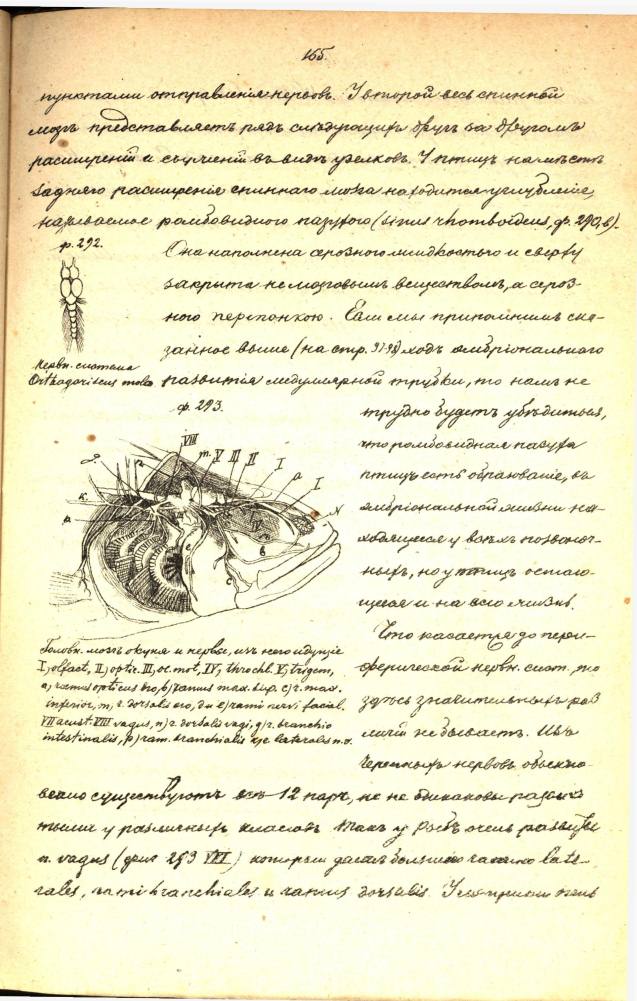 165.
пунктами отправленія нервовъ. У второй весь спинной
мозгъ представляетъ рядъ слѣдующихъ другъ за другомъ
расширеній и съуженій въ видѣ узелковъ. У птицъ на мѣстѣ
задняго расширенія спиннаго мозга находится углубленіе,
называемое ромбовидною пазухою (sinus rhomboideus, ф. 290, в).
ф. 292.
Она наполнена серозною жидкостью и сверху
закрыта не мозговымъ веществомъ, а сероз-
ною перепонкою. Если мы припомнимъ ска-
занное выше (на стр. 97-98) ходъ эмбріональнаго
Нервн. система
Orthagoriscus mola.
развитія медуллярной трубки, то намъ не
ф. 293.
трудно будетъ убѣдиться,
что ромбовидная пазуха
птицъ есть образованіе, въ
эмбріональной жизни на-
ходящееся у всѣхъ позвоноч-
ныхъ, но у птицъ остаю-
щееся и на всю жизнь.
VIII m. V III II I a I N
k.
IV b c
Головн. мозгъ окуня и нервы, изъ него идущіе
I, olfact, II, optic. III, oc. mot, IV, throchl. V, trigem,
a, ramus opticus b, ramus max. sup. c) r. max.
inferior, m, r. dorsalis e) rami nervi facial.
VII acust. VIII vagus, n) r. dorsalis vagi, q) r. branchio
intestinalis, p) ram. branchialis lateralis n.v.
Что касается до пери-
ферической нервн. сист. то
здѣсь значительныхъ раз
личій не бываетъ. Изъ
черепныхъ нервовъ обыкно-
венно существуютъ всѣ 12 паръ, но не одинаково развиты
у различныхъ классовъ. Такъ у рыбъ очень развитъ
n. vagus (фиг 293 VIII) который даетъ late-
rales, rami branchiales и ramus dorsalis. У